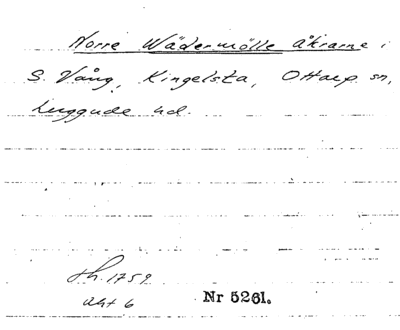 Norre Wädermölle åkrarne i
S. Vång, Kingelsta, Ottarp sn,
Luggude hd.
1759
akt 6
Nr 5261.